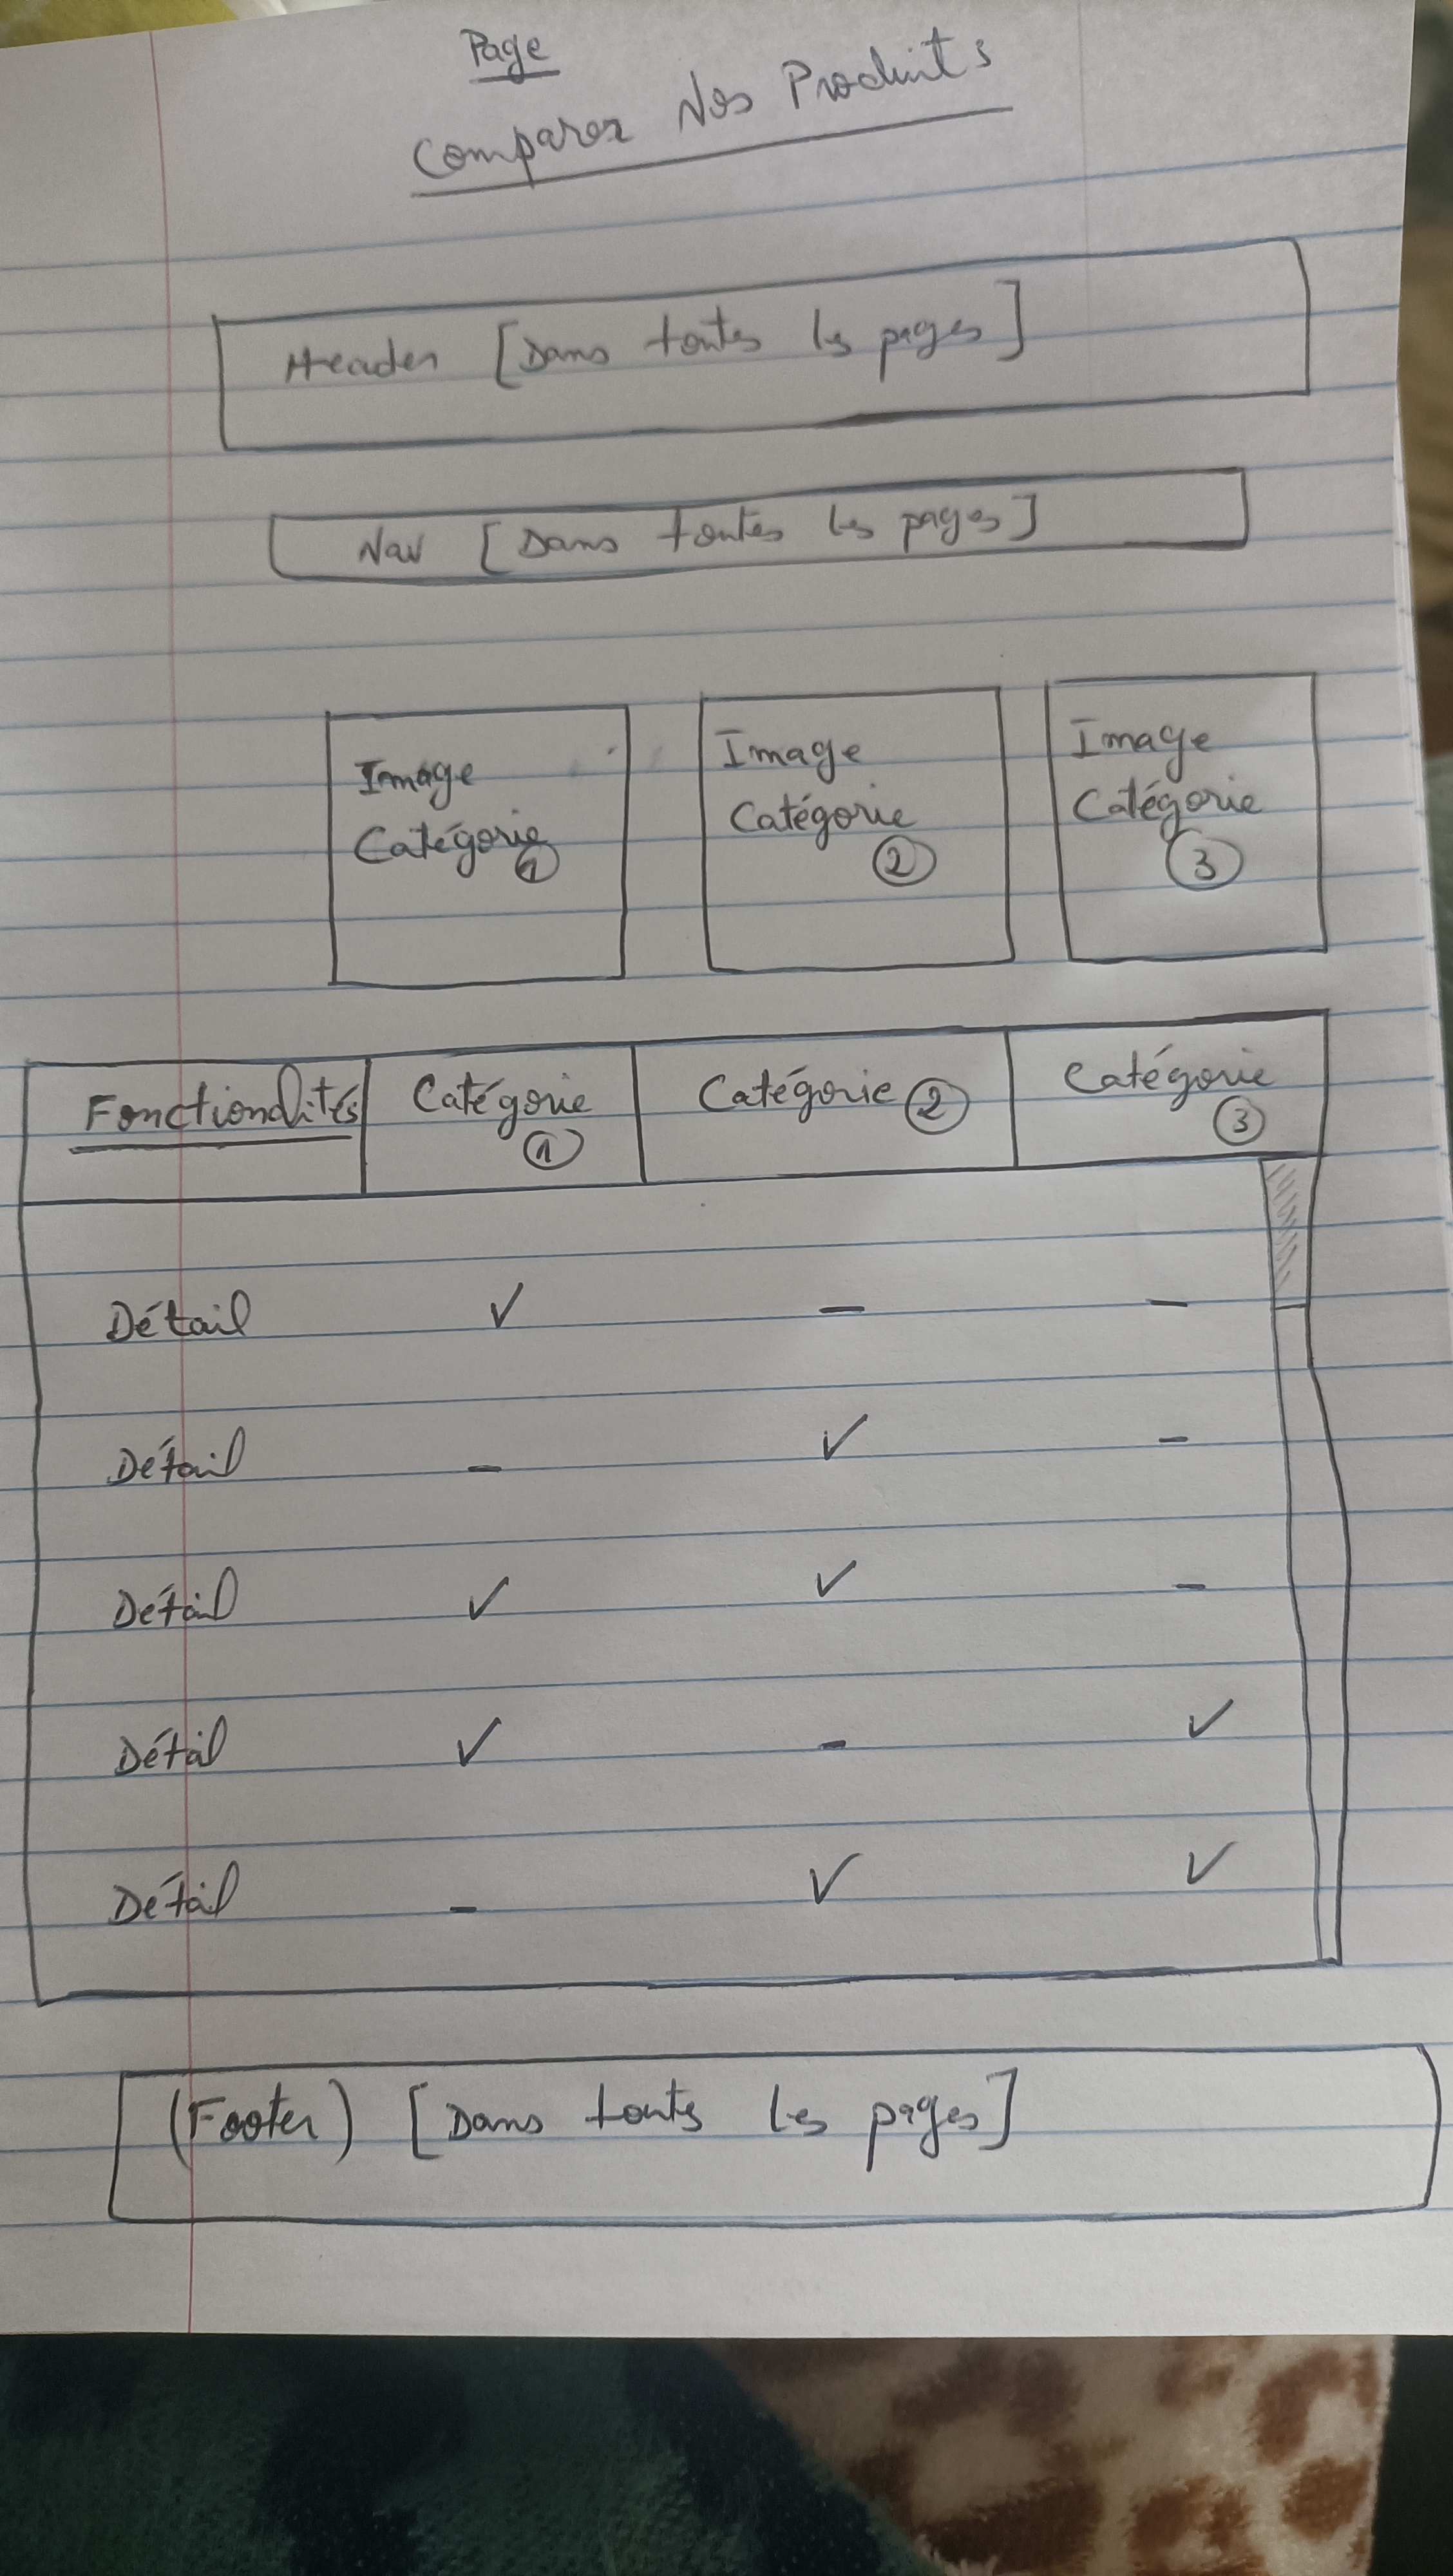 Page
Comparez Nos Produits
Header [Dans toutes les pages]
Nav [Dans toutes les pages]
Image
Catégorie
1
Image
Catégorie
2
Image
Catégorie
3
Fonctionalités
Catégorie
1
Catégorie 2
Catégorie
3
Détail ✓ - -
Détail - ✓ -
Détail ✓ ✓ -
Détail ✓ - ✓
Détail - ✓ ✓
(Footer) [Dans toutes les pages]